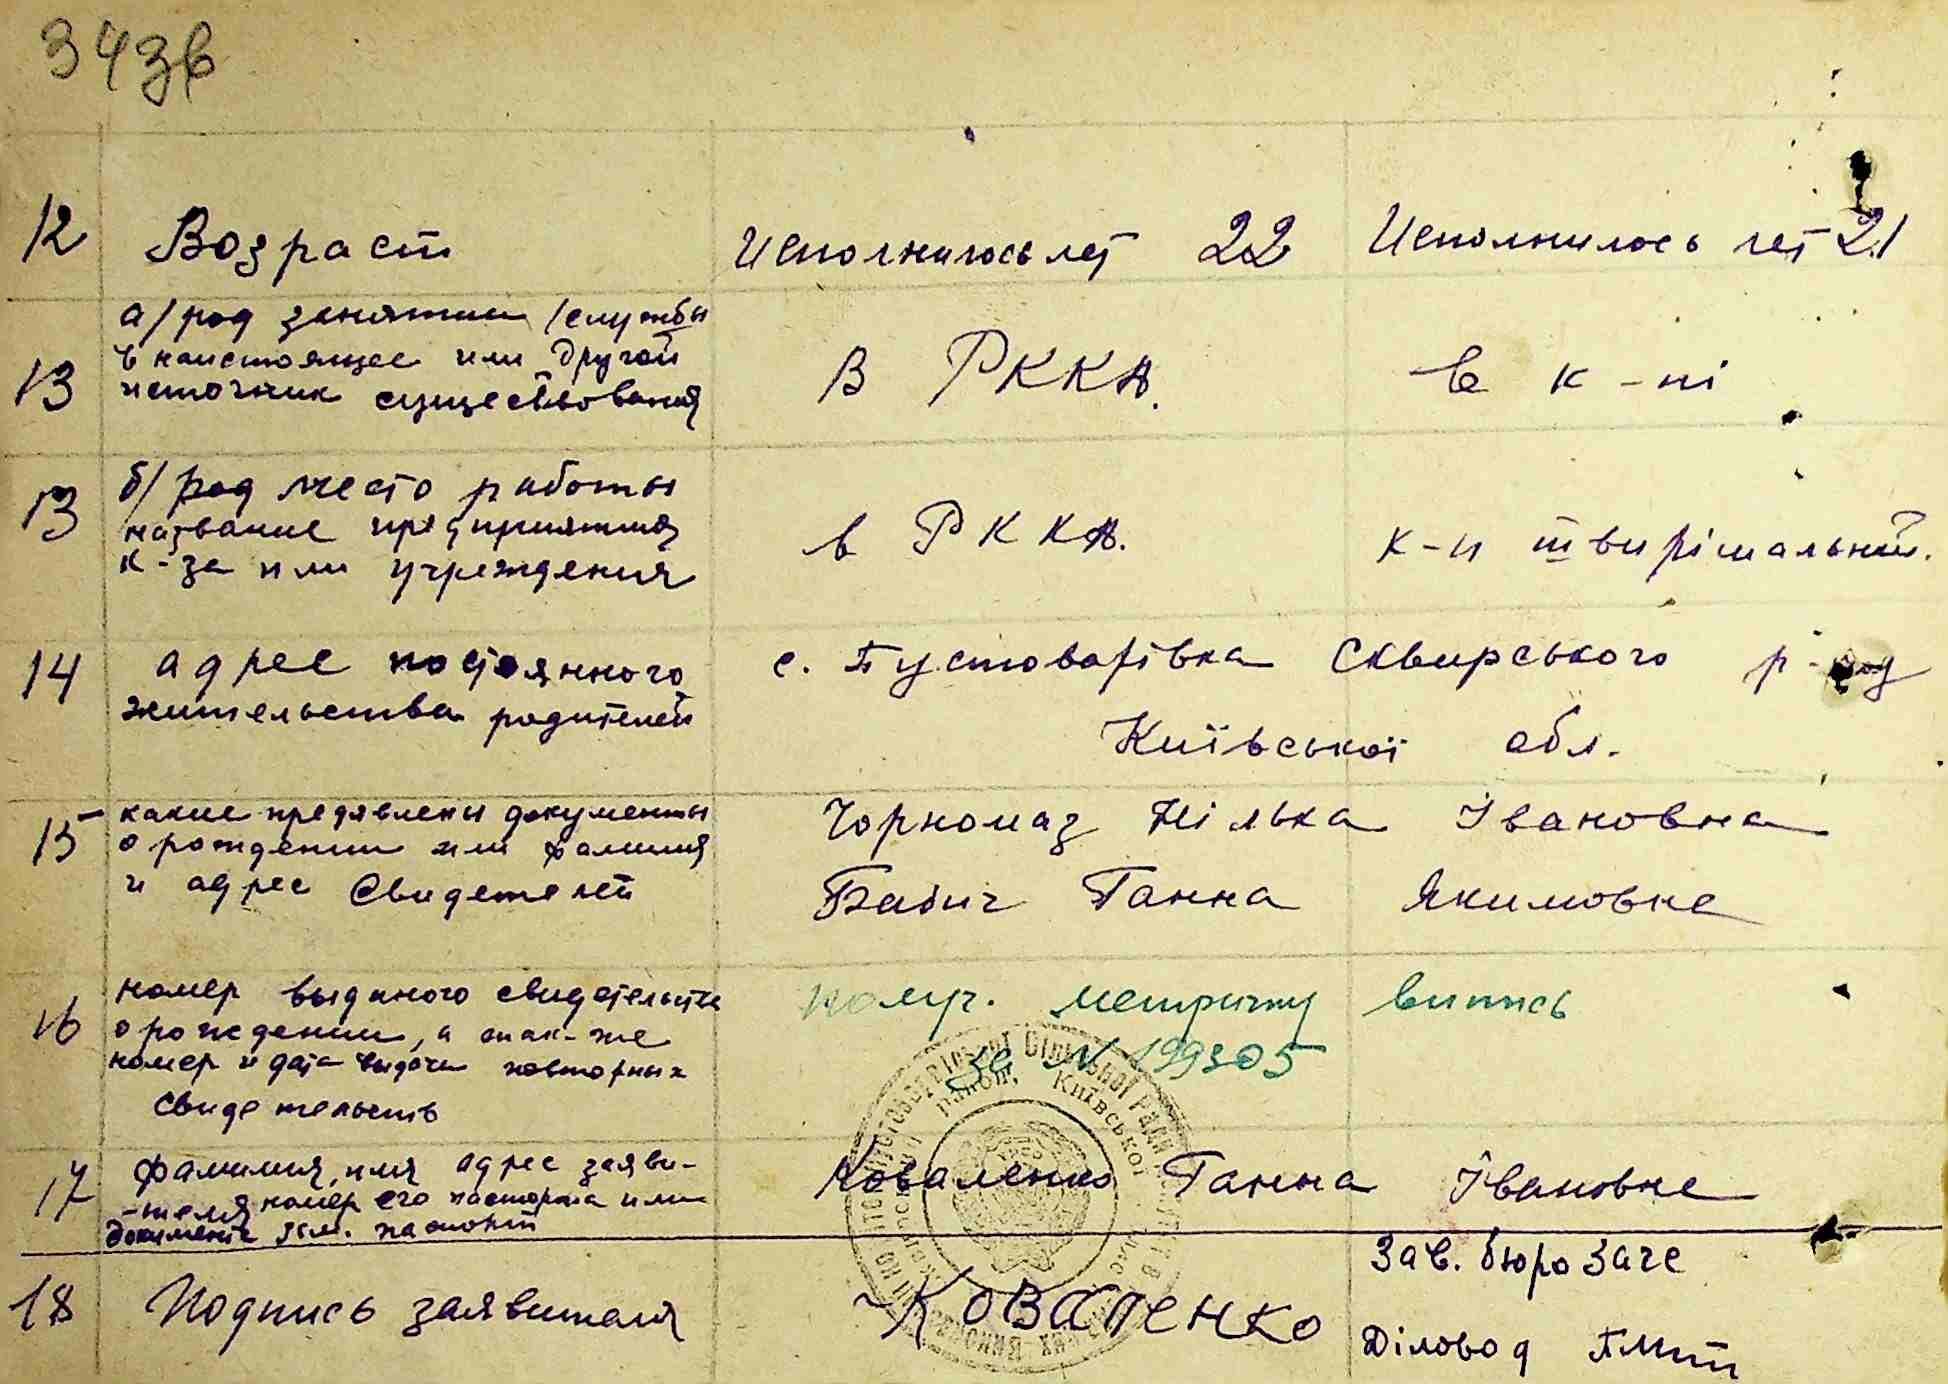 343в
12 Возраст Исполнилось лет 22 Исполнилось лет 21
13 а/ род занятии /службы
в наистоящее или другой
источник существования В РККА. в к-пі
13 б/ род место работы
название предприятия
к-за или учреждения в РККА. к-п
14 адрес постоянного
жительства родителей с. Пустоварівка Сквирського
Київської обл.
15 какие предявлены документы
о рождении или фамилия
и адрес Свидетелей Чорномаз Мілька Івановна
Бабич Ганна Якимовна
16 номер выданого свидетельства
о рождении, а так-же
номер и дата выдачи повторных
свидетельств получ. метричну випись
за N 199305
17 фамилия, имя адрес заяви-
-теля номер его паспорта или
Коваленко Ганна Івановне
18 Подпись заявителя Коваленко
Зав. бюро Загс
Діловод
Сільської Ради
район, Київської